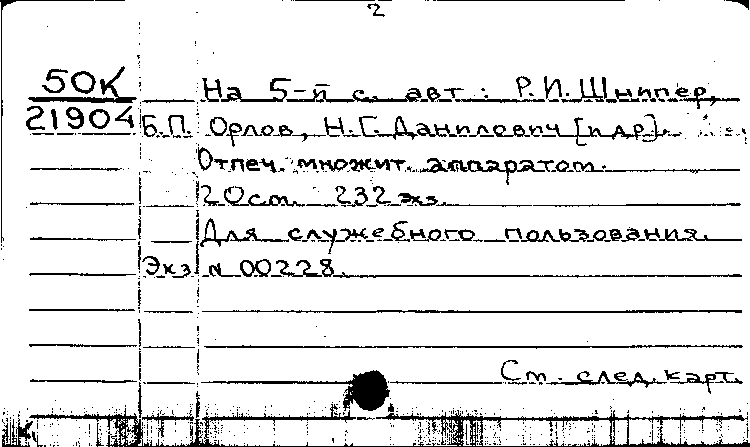 2
50К На 5-й с. авт: Р.И.Шнипер,
21904 Б.П. Орлов, Н.Г.Данилович [и др].
Отпеч. множит. аппаратом.
20см. 232 экз.
Для служебного пользования.
Экз N 00228.
См. след. карт.